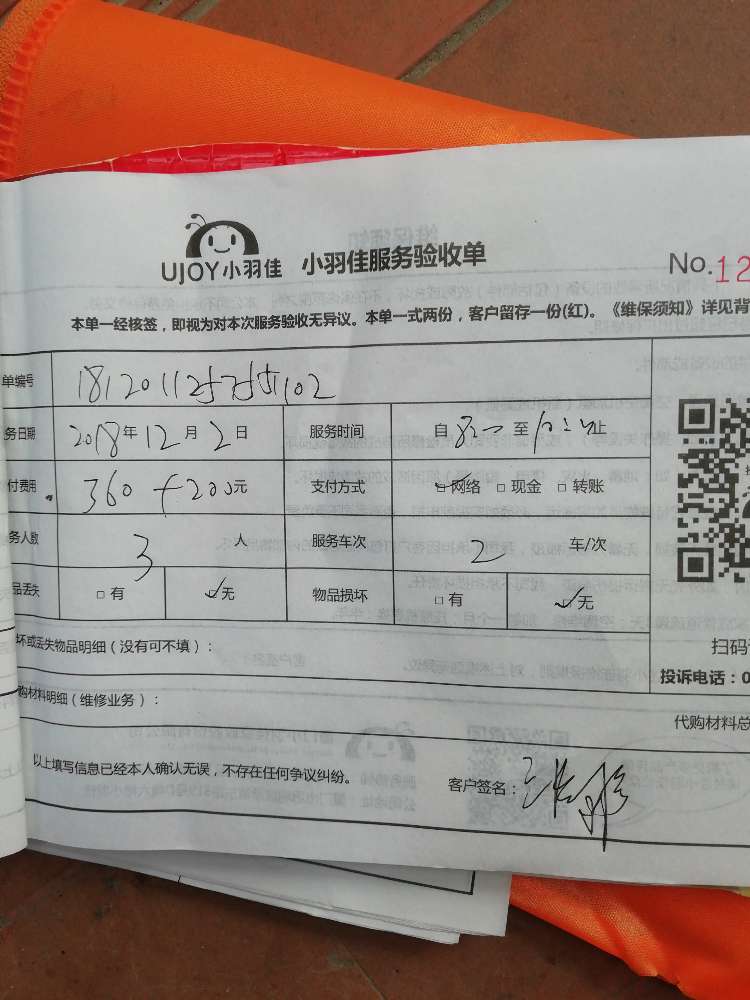 UJOY小羽佳 小羽佳服务验收单 No.12
本单一经核签，即视为对本次服务验收无异议。本单一式两份，客户留存一份(红)。《维保须知》详见背
单编号
务日期 2018年12月2日 服务时间 自 至 止
付费用 360+200元 支付方式 网络 □现金 □转账
务人数 3人 服务车次 2 车/次
品丢失 □有 无 物品损坏 □有 无
坏或丢失物品明细（没有可不填）：
扫码
投诉电话：0
购材料明细（维修业务）：
代购材料总
以上填写信息已经本人确认无误，不存在任何争议纠纷。 客户签名：